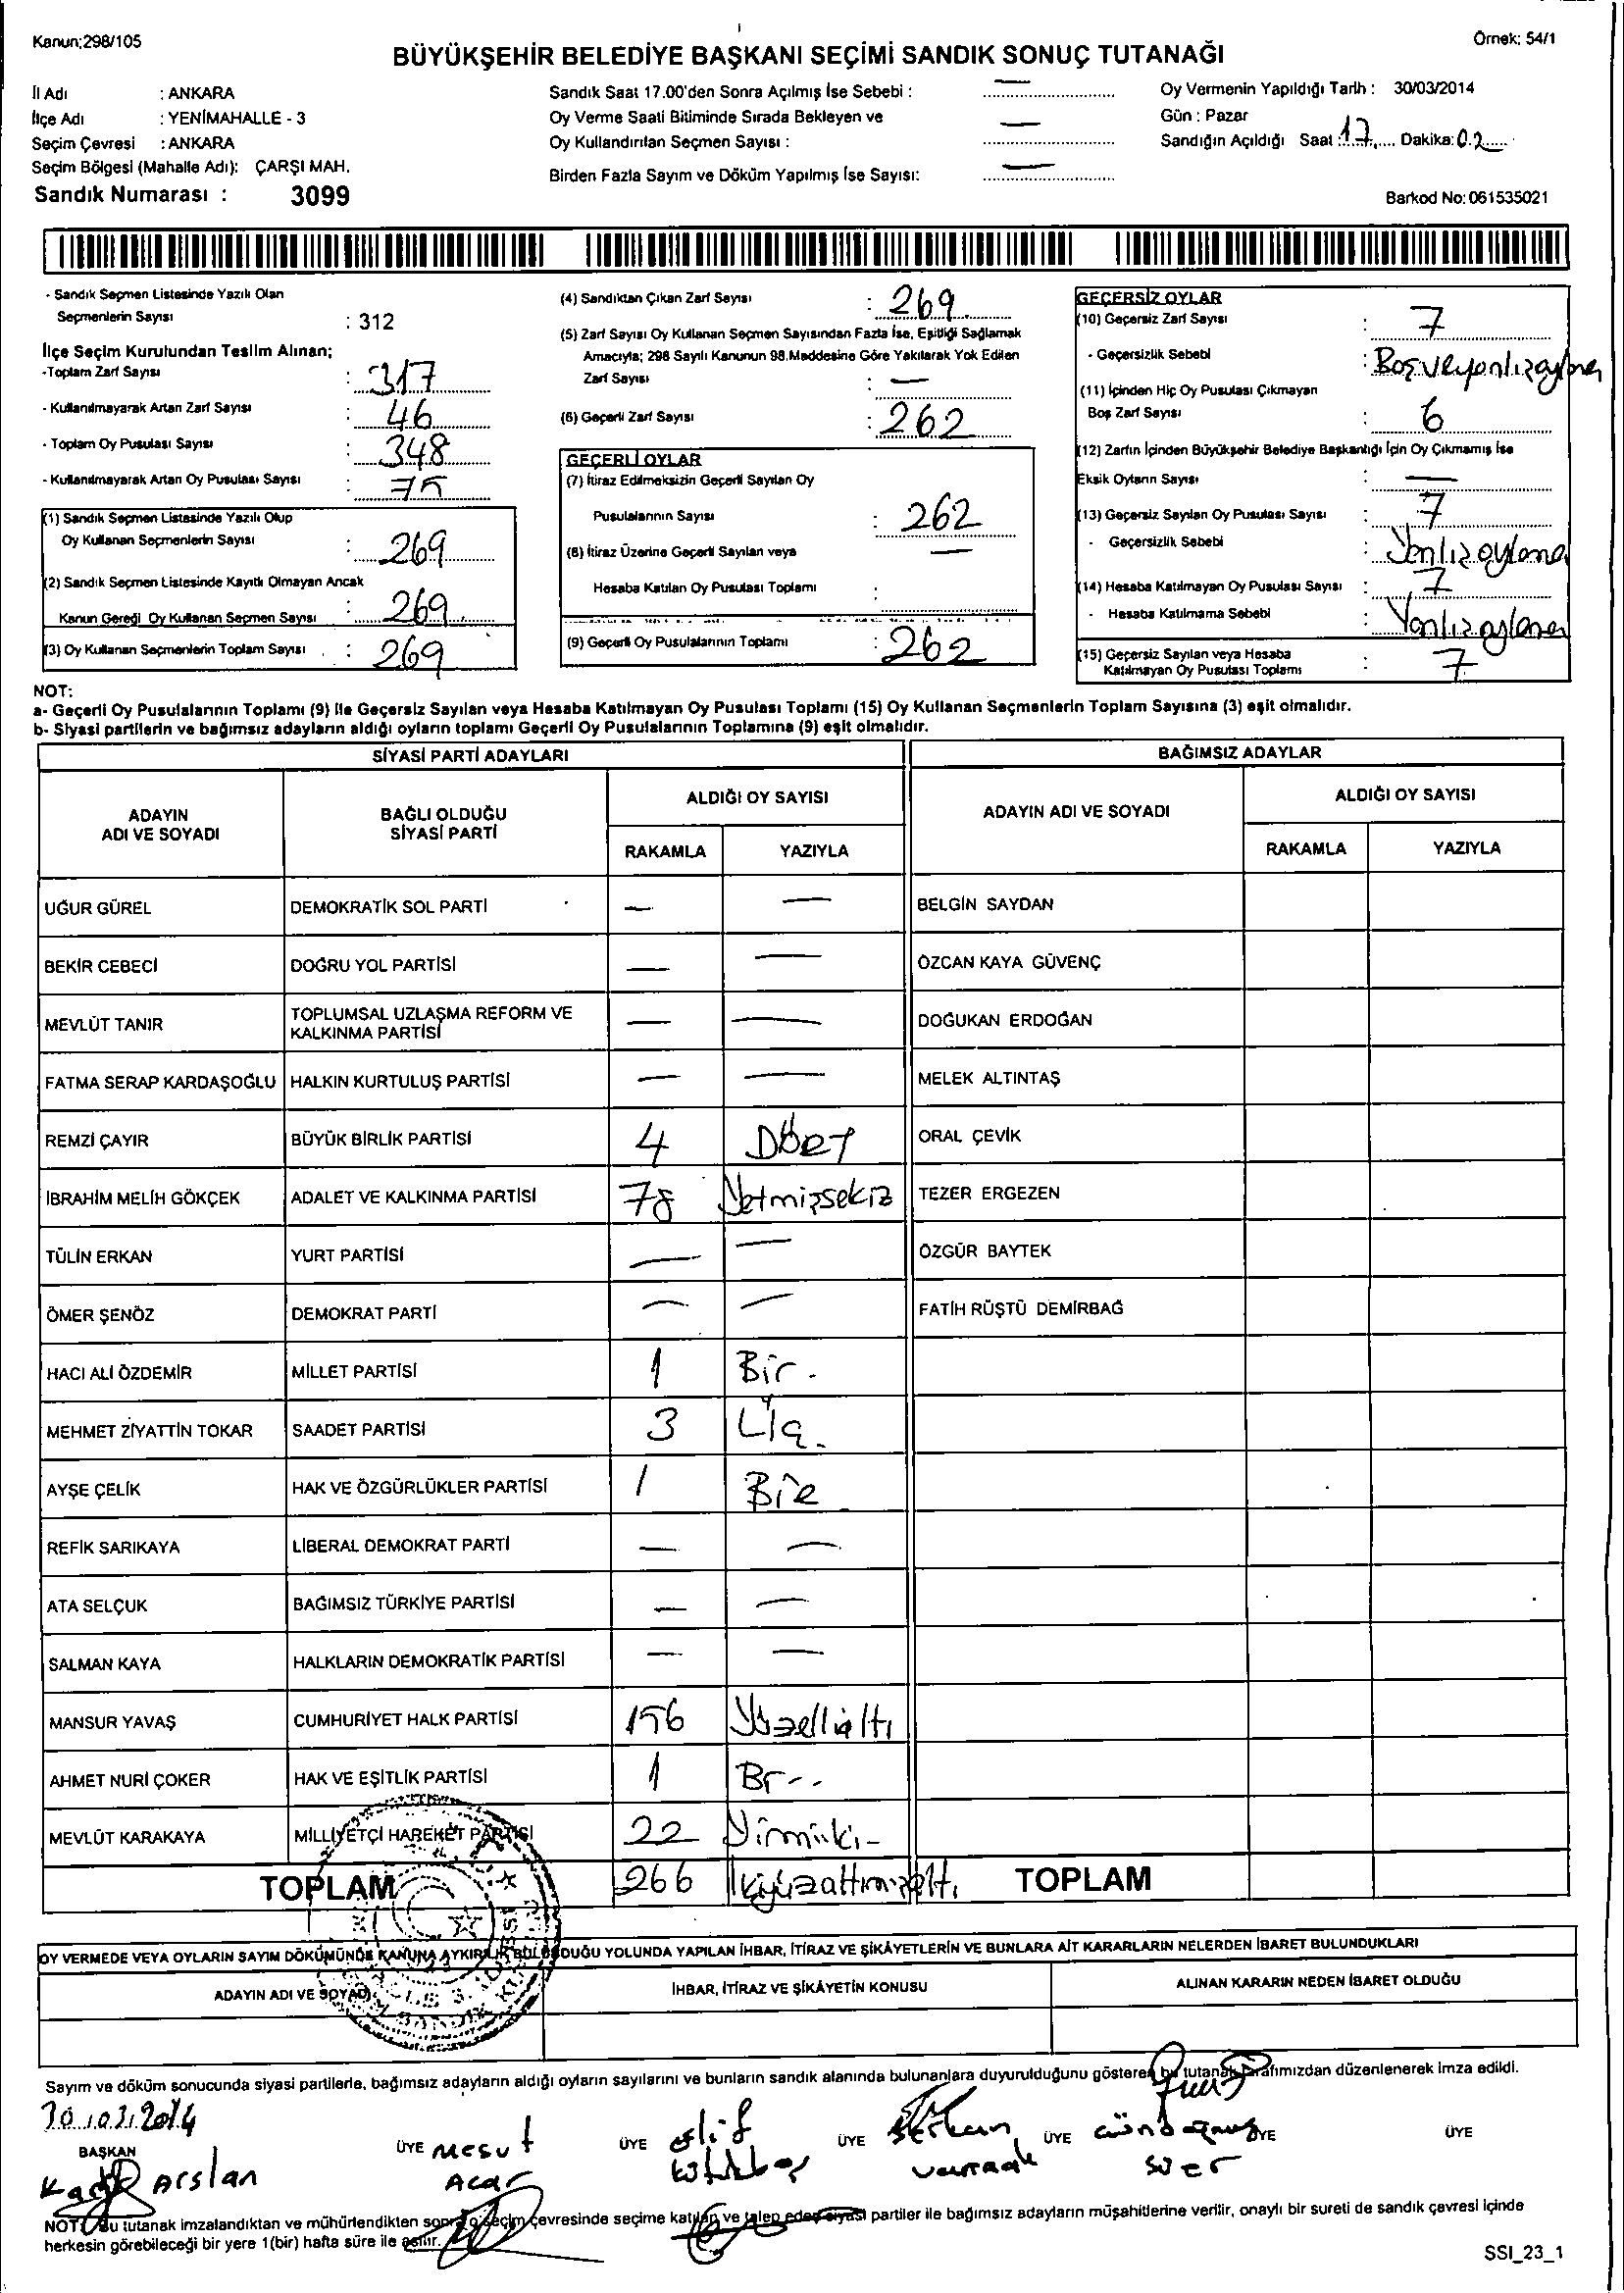 Kanun;298/105
Örnek: 54/1
BÜYÜKŞEHİR BELEDİYE BAŞKANI SEÇİMİ SANDIK SONUÇ TUTANAĞI
İl Adı : ANKARA
İlçe Adı : YENİMAHALLE - 3
Seçim Çevresi : ANKARA
Seçim Bölgesi (Mahalle Adı): ÇARŞI MAH.
Sandık Numarası : 3099
Sandık Saat 17.00'den Sonra Açılmış İse Sebebi : —
Oy Verme Saati Bitiminde Sırada Bekleyen ve
Oy Kullandırılan Seçmen Sayısı : —
Birden Fazla Sayım ve Döküm Yapılmış İse Sayısı: —
Oy Vermenin Yapıldığı Tarih : 30/03/2014
Gün : Pazar
Sandığın Açıldığı Saat : 17 Dakika: 02
Barkod No: 061535021
- Sandık Seçmen Listesinde Yazılı Olan
Seçmenlerin Sayısı : 312
İlçe Seçim Kurulundan Teslim Alınan;
-Toplam Zarf Sayısı : 317
- Kullanılmayarak Artan Zarf Sayısı : 46
- Toplam Oy Pusulası Sayısı : 348
- Kullanılmayarak Artan Oy Pusulası Sayısı : 75
(1) Sandık Seçmen Listesinde Yazılı Olup
Oy Kullanan Seçmenlerin Sayısı : 269
(2) Sandık Seçmen Listesinde Kayıtlı Olmayan Ancak
Kanun Gereği Oy Kullanan Seçmen Sayısı : 269
(3) Oy Kullanan Seçmenlerin Toplam Sayısı : 269
(4) Sandıktan Çıkan Zarf Sayısı : 269
(5) Zarf Sayısı Oy Kullanan Seçmen Sayısından Fazla İse, Eşitliği Sağlamak
Amacıyla; 298 Sayılı Kanunun 98.Maddesine Göre Yakılarak Yok Edilen
Zarf Sayısı : —
(6) Geçerli Zarf Sayısı : 262
GEÇERLİ OYLAR
(7) İtiraz Edilmeksizin Geçerli Sayılan Oy
Pusulalarının Sayısı : 262
(8) İtiraz Üzerine Geçerli Sayılan veya —
Hesaba Katılan Oy Pusulası Toplamı :
(9) Geçerli Oy Pusulalarının Toplamı : 262
GEÇERSİZ OYLAR
(10) Geçersiz Zarf Sayısı : 7
- Geçersizlik Sebebi :
(11) İçinden Hiç Oy Pusulası Çıkmayan
Boş Zarf Sayısı : 6
(12) Zarfın İçinden Büyükşehir Belediye Başkanlığı İçin Oy Çıkmamış İse
Eksik Oyların Sayısı : —
(13) Geçersiz Sayılan Oy Pusulası Sayısı : 7
- Geçersizlik Sebebi :
(14) Hesaba Katılmayan Oy Pusulası Sayısı : 7
- Hesaba Katılmama Sebebi :
(15) Geçersiz Sayılan veya Hesaba
Katılmayan Oy Pusulası Toplamı : 7
NOT:
a- Geçerli Oy Pusulalarının Toplamı (9) ile Geçersiz Sayılan veya Hesaba Katılmayan Oy Pusulası Toplamı (15) Oy Kullanan Seçmenlerin Toplam Sayısına (3) eşit olmalıdır.
b- Siyasi partilerin ve bağımsız adayların aldığı oyların toplamı Geçerli Oy Pusulalarının Toplamına (9) eşit olmalıdır.
SİYASİ PARTİ ADAYLARI
BAĞIMSIZ ADAYLAR
ADAYIN
ADI VE SOYADI
BAĞLI OLDUĞU
SİYASİ PARTİ
ALDIĞI OY SAYISI
RAKAMLA YAZIYLA
ADAYIN ADI VE SOYADI
ALDIĞI OY SAYISI
RAKAMLA YAZIYLA
UĞUR GÜREL DEMOKRATİK SOL PARTİ — — BELGİN SAYDAN
BEKİR CEBECİ DOĞRU YOL PARTİSİ — — ÖZCAN KAYA GÜVENÇ
MEVLÜT TANIR TOPLUMSAL UZLAŞMA REFORM VE
KALKINMA PARTİSİ — — DOĞUKAN ERDOĞAN
FATMA SERAP KARDAŞOĞLU HALKIN KURTULUŞ PARTİSİ — — MELEK ALTINTAŞ
REMZİ ÇAYIR BÜYÜK BİRLİK PARTİSİ 4 DÖRT ORAL ÇEVİK
İBRAHİM MELİH GÖKÇEK ADALET VE KALKINMA PARTİSİ 78 Yetmişsekiz TEZER ERGEZEN
TÜLİN ERKAN YURT PARTİSİ — — ÖZGÜR BAYTEK
ÖMER ŞENÖZ DEMOKRAT PARTİ — — FATİH RÜŞTÜ DEMİRBAĞ
HACI ALİ ÖZDEMİR MİLLET PARTİSİ 1 Bir -
MEHMET ZİYATTİN TOKAR SAADET PARTİSİ 3
AYŞE ÇELİK HAK VE ÖZGÜRLÜKLER PARTİSİ 1 Bir
REFİK SARIKAYA LİBERAL DEMOKRAT PARTİ — —
ATA SELÇUK BAĞIMSIZ TÜRKİYE PARTİSİ — —
SALMAN KAYA HALKLARIN DEMOKRATİK PARTİSİ — —
MANSUR YAVAŞ CUMHURİYET HALK PARTİSİ 156 Yüzellialtı
AHMET NURİ ÇOKER HAK VE EŞİTLİK PARTİSİ 1 Br--
MEVLÜT KARAKAYA MİLLİYETÇİ HAREKET PARTİSİ 22 Yirmiiki-
TOPLAM 266 İkiyüzattmışaltı TOPLAM
OY VERMEDE VEYA OYLARIN SAYIM DÖKÜMÜNDE KANUNA AYKIRILIK BULUNDUĞU YOLUNDA YAPILAN İHBAR, İTİRAZ VE ŞİKÂYETLERİN VE BUNLARA AİT KARARLARIN NELERDEN İBARET BULUNDUKLARI
ADAYIN ADI VE SOYADI İHBAR, İTİRAZ VE ŞİKÂYETİN KONUSU ALINAN KARARIN NEDEN İBARET OLDUĞU
Sayım ve döküm sonucunda siyasi partilerle, bağımsız adayların aldığı oyların sayılarını ve bunların sandık alanında bulunanlara duyurulduğunu gösteren bu tutanak tarafımızdan düzenlenerek imza edildi.
30.03.2014
BAŞKAN ÜYE ÜYE ÜYE ÜYE ÜYE ÜYE
Arslan
Mesut Acar
Elif
Serkan
Gündoğmuş
Süer
NOT: Bu tutanak imzalandıktan ve mühürlendikten sonra o seçim çevresinde seçime katılan ve talep eden siyasi partiler ile bağımsız adayların müşahitlerine verilir, onaylı bir sureti de sandık çevresi içinde
herkesin görebileceği bir yere 1(bir) hafta süre ile asılır.
SSI_23_1